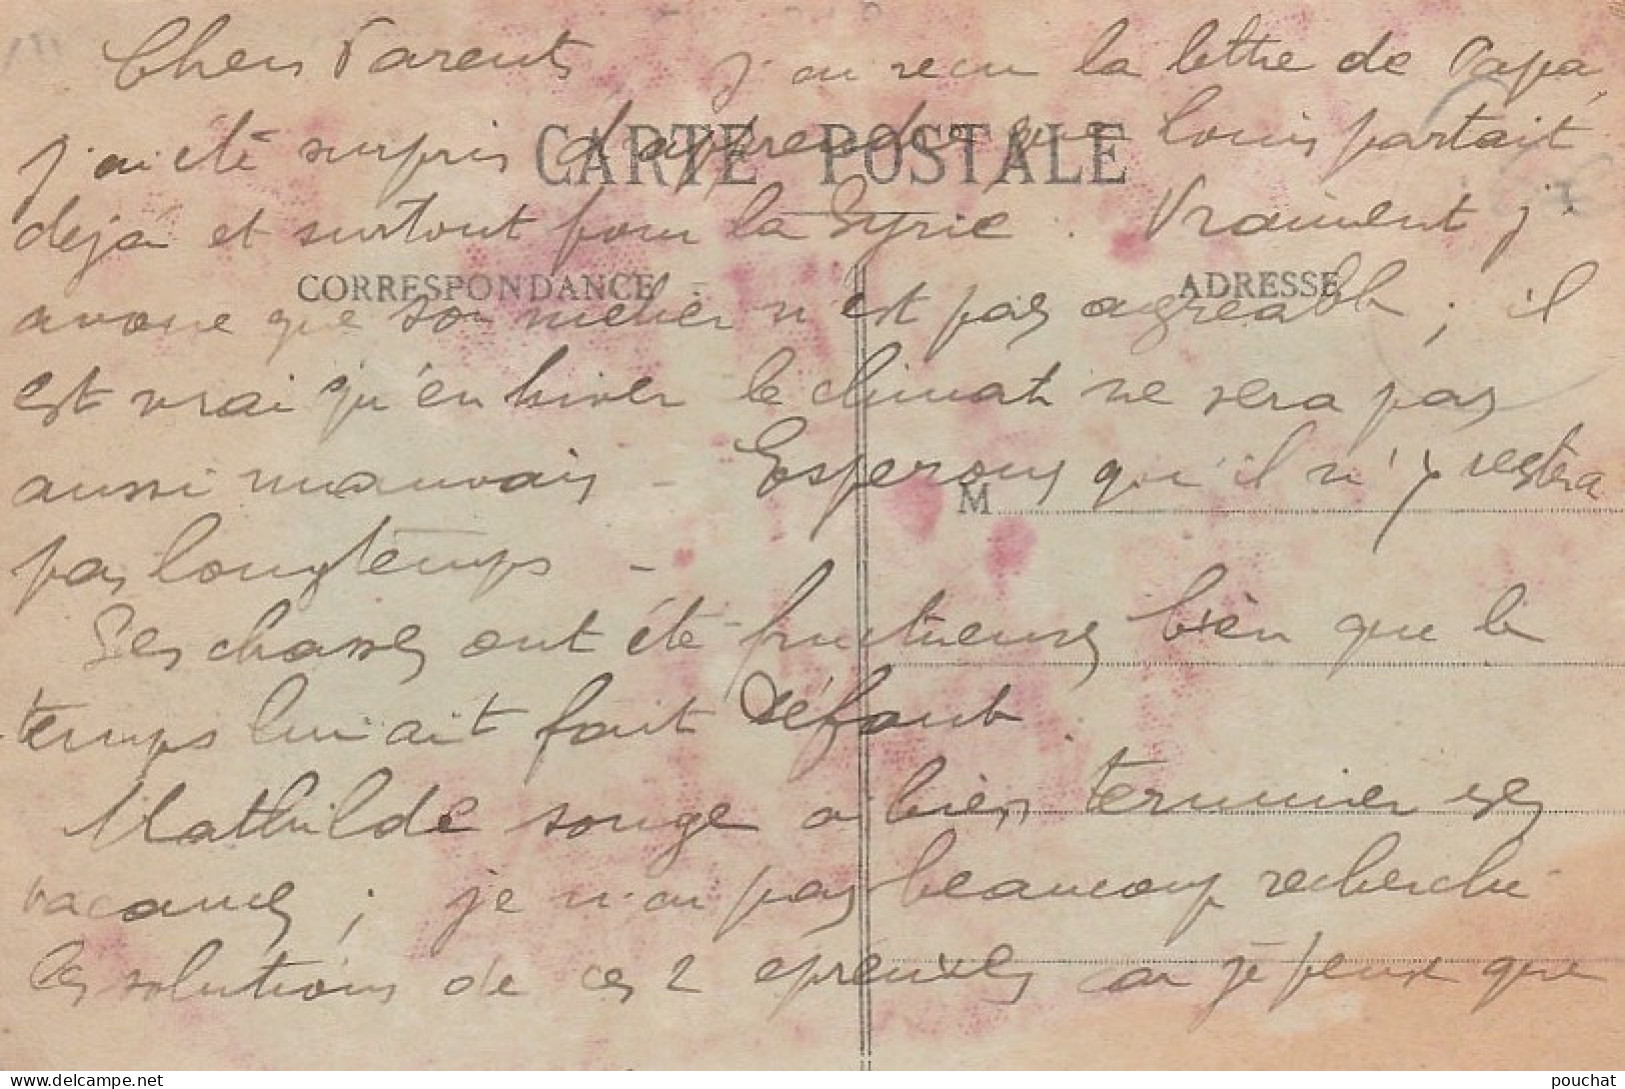 Chers Parents j'ai reçu la lettre de Papa,
j'ai été surpris d'apprendre que Louis partait
CARTE POSTALE
déjà et surtout pour la Syrie. Vraiment j'
CORRESPONDANCE ADRESSE
avoue que son métier n'est pas agréable ; il
est vrai qu'en hiver le climat ne sera pas
aussi mauvais - Esperons qu'il n'y restera
M
pas longtemps -
Ses chasses ont été fructueuses bien que le
temps lui ait fait défaut.
Mathilde songe a bien terminer ses
vacances ; je n'ai pas beaucoup recherché
les solutions de ces 2 épreuves car je pense que
pouchat
www.delcampe.net